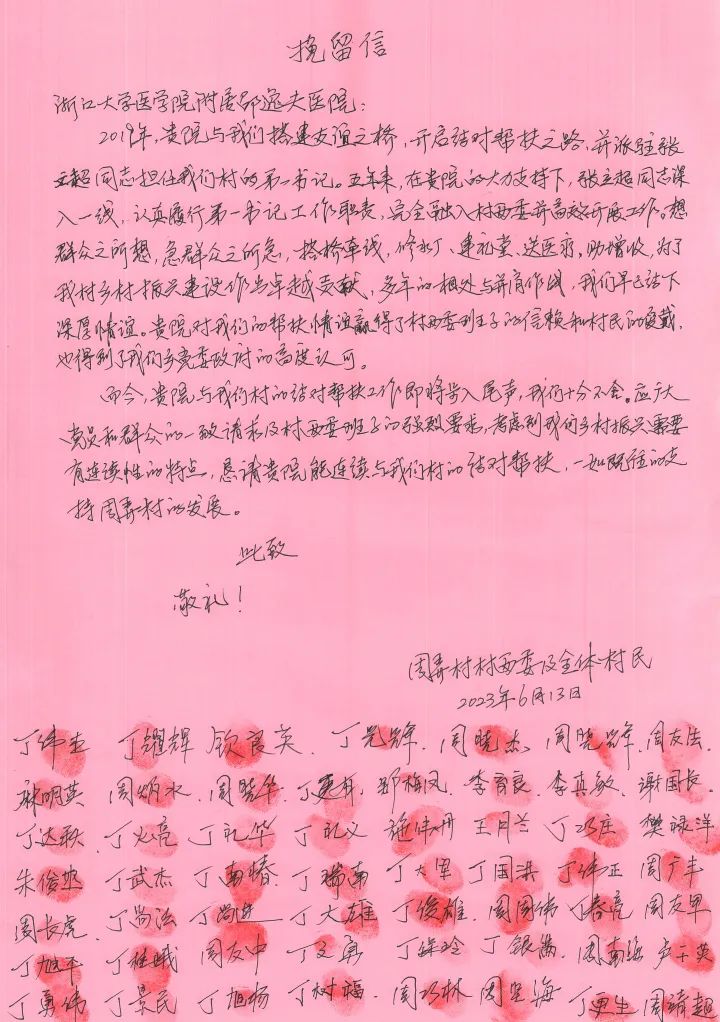 挽留信
浙江大学医学院附属邵逸夫医院：
2019年，贵院与我们搭建友谊之桥，开启结对帮扶之路，并派驻张
立超同志担任我们村的第一书记。五年来，在贵院的大力支持下，张立超同志深
入一线，认真履行第一书记工作职责，完全融入村两委并高效开展工作。想
群众之所想，急群众之所急，搭桥牵线，修水厂、建礼堂、送医疗，助增收，为了
我村乡村振兴建设作出卓越贡献，多年的相处与并肩作战，我们早已结下
深厚情谊。贵院对我们的帮扶情谊赢得了村两委班子的信赖和村民的爱戴，
也得到了我们乡党委政府的高度认可。
而今，贵院与我们村的结对帮扶工作即将步入尾声，我们十分不舍。应广大
党员和群众的一致请求及村两委班子的强烈要求，考虑到我们乡村振兴需要
有连续性的特点，恳请贵院能连续与我们村的结对帮扶，一如既往的支
持周弄村的发展。
此致
敬礼！
周弄村村两委及全体村民
2023年6月13日
丁伟 丁耀辉 钦良英 丁光辉 周晓杰 周晓辉 周友法
耿明英 周炳水 周晓华 丁 郑梅凤 李育良 李真敏 谢国长
丁达 丁火亮 丁礼华 丁礼义 施伟 王月兰 丁巧庄 樊禄洋
朱俊 丁武杰 丁南椿 丁瑞南 丁大军 丁国洪 丁伟正 周广丰
周长虎 丁尚法 丁尚进 丁大雄 丁俊雄 周国伟 丁春亮 周友军
丁旭平 丁桂娥 周友中 丁文勇 丁 丁银满 周南海 卢干英
丁勇伟 丁景民 丁旭杨 丁树福 周巧林 周 海 丁更生 周靖超